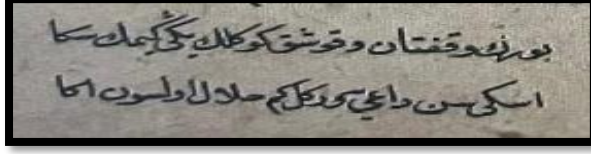 بورنك وقفتان وقوشق كوكلك يكى كيمك سكا
اسكى سن داعى ويركل كم حلال اولسون اكا